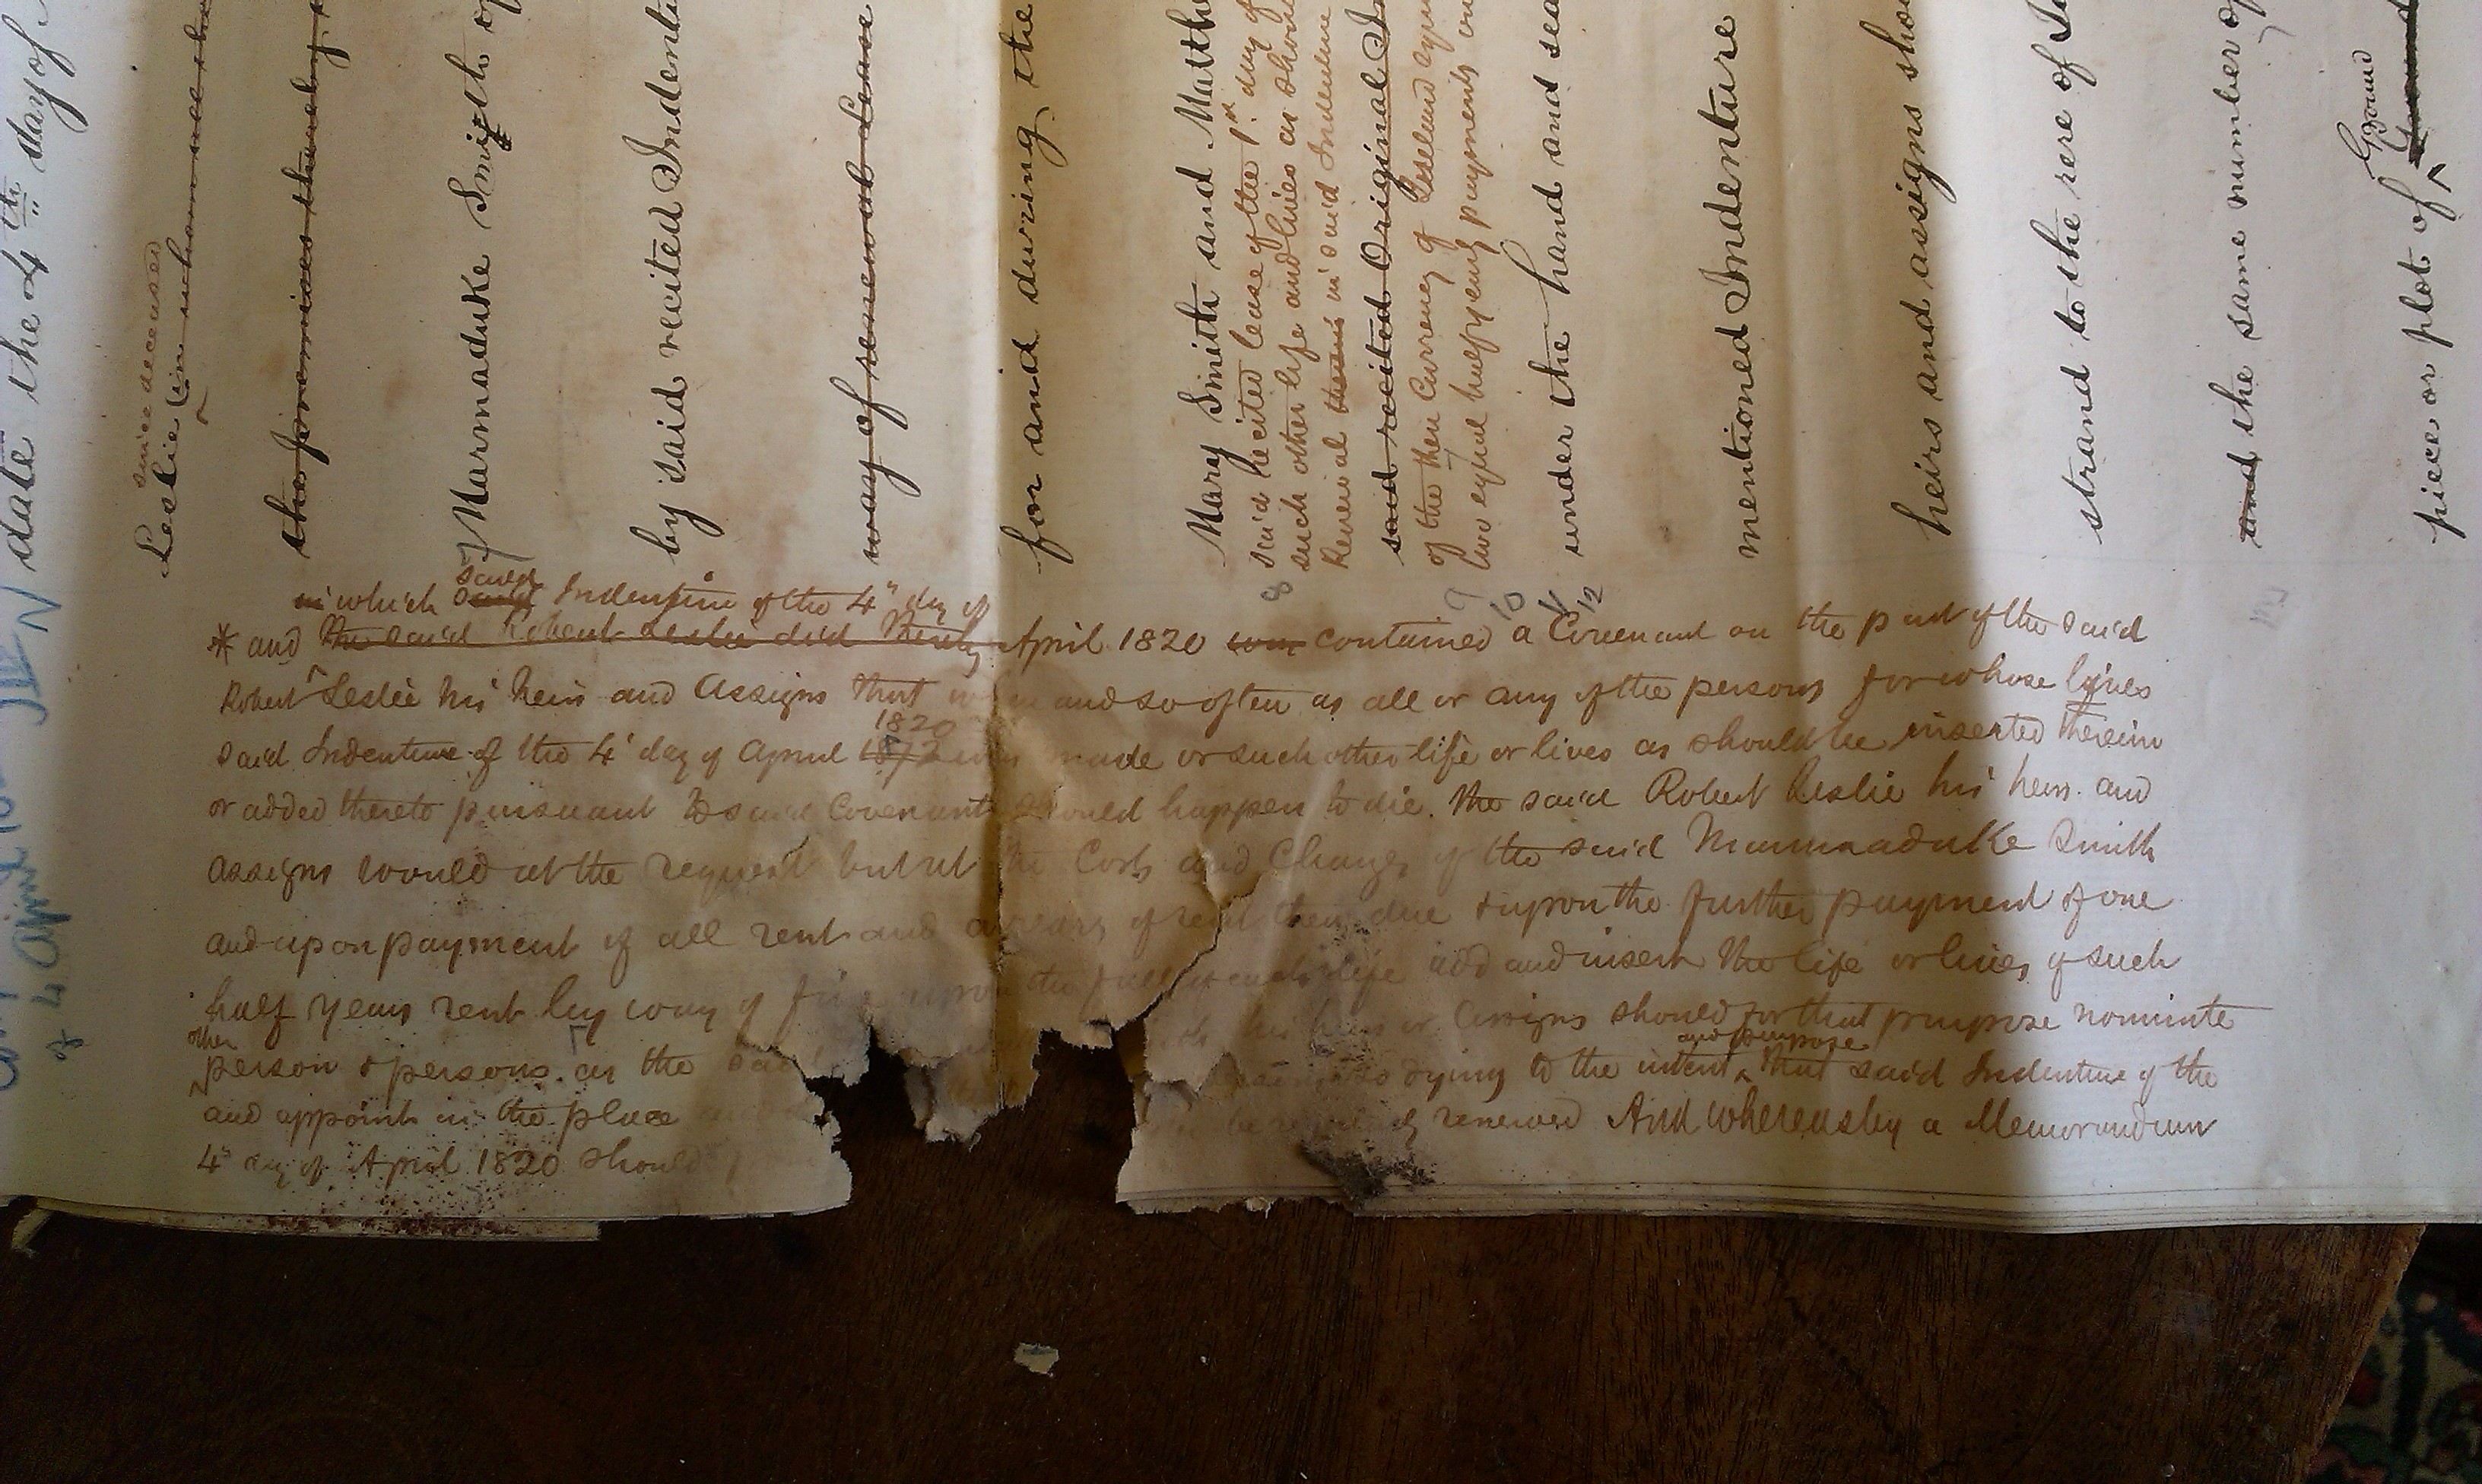 date the 4th day of
since deceased
Leslie (in whom
the premises thereby
Marmaduke Smith of
by said recited Indent
way of renewal Lease
for and during the
Mary Smith and Matth
said recited lease of the 1st day of
such other life and lives as should
Renewal therein in said Indenture
said recited Original In
of the then Currency of
two equal half yearly payments
under the hand and sea
mentioned Indenture
heirs and assigns sho
strand to the rere of
and the same number of
Ground
piece or plot of
of 4 April
said
in which said Indenture of the 4" day of
* and the said Robert Leslie did thereby April 1820 contained a Covenant on the part of the said
Robert Leslie his heirs and Assigns that when and so often as all or any of the persons for whose lives
1820
said Indenture of the 4" day of April 1872 was made or such other life or lives as should be inserted therein
or added thereto pursuant to said Covenant should happen to die. the said Robert Leslie his heirs and
assigns would at the request but at the Costs and Charges of the said Marmaduke Smith
and upon payment of all rent and arrears of rent then due & upon the further payment of one
half years rent by way of fine upon the fall of each life add and insert the life or lives of such
other
person & persons as the said his heirs or Assigns should for that purpose nominate
and purpose
and appoint in the place so dying to the intent that said Indenture of the
4" day of April 1820 should be renewed And whereas by a Memorandum
7
8
9
10
12